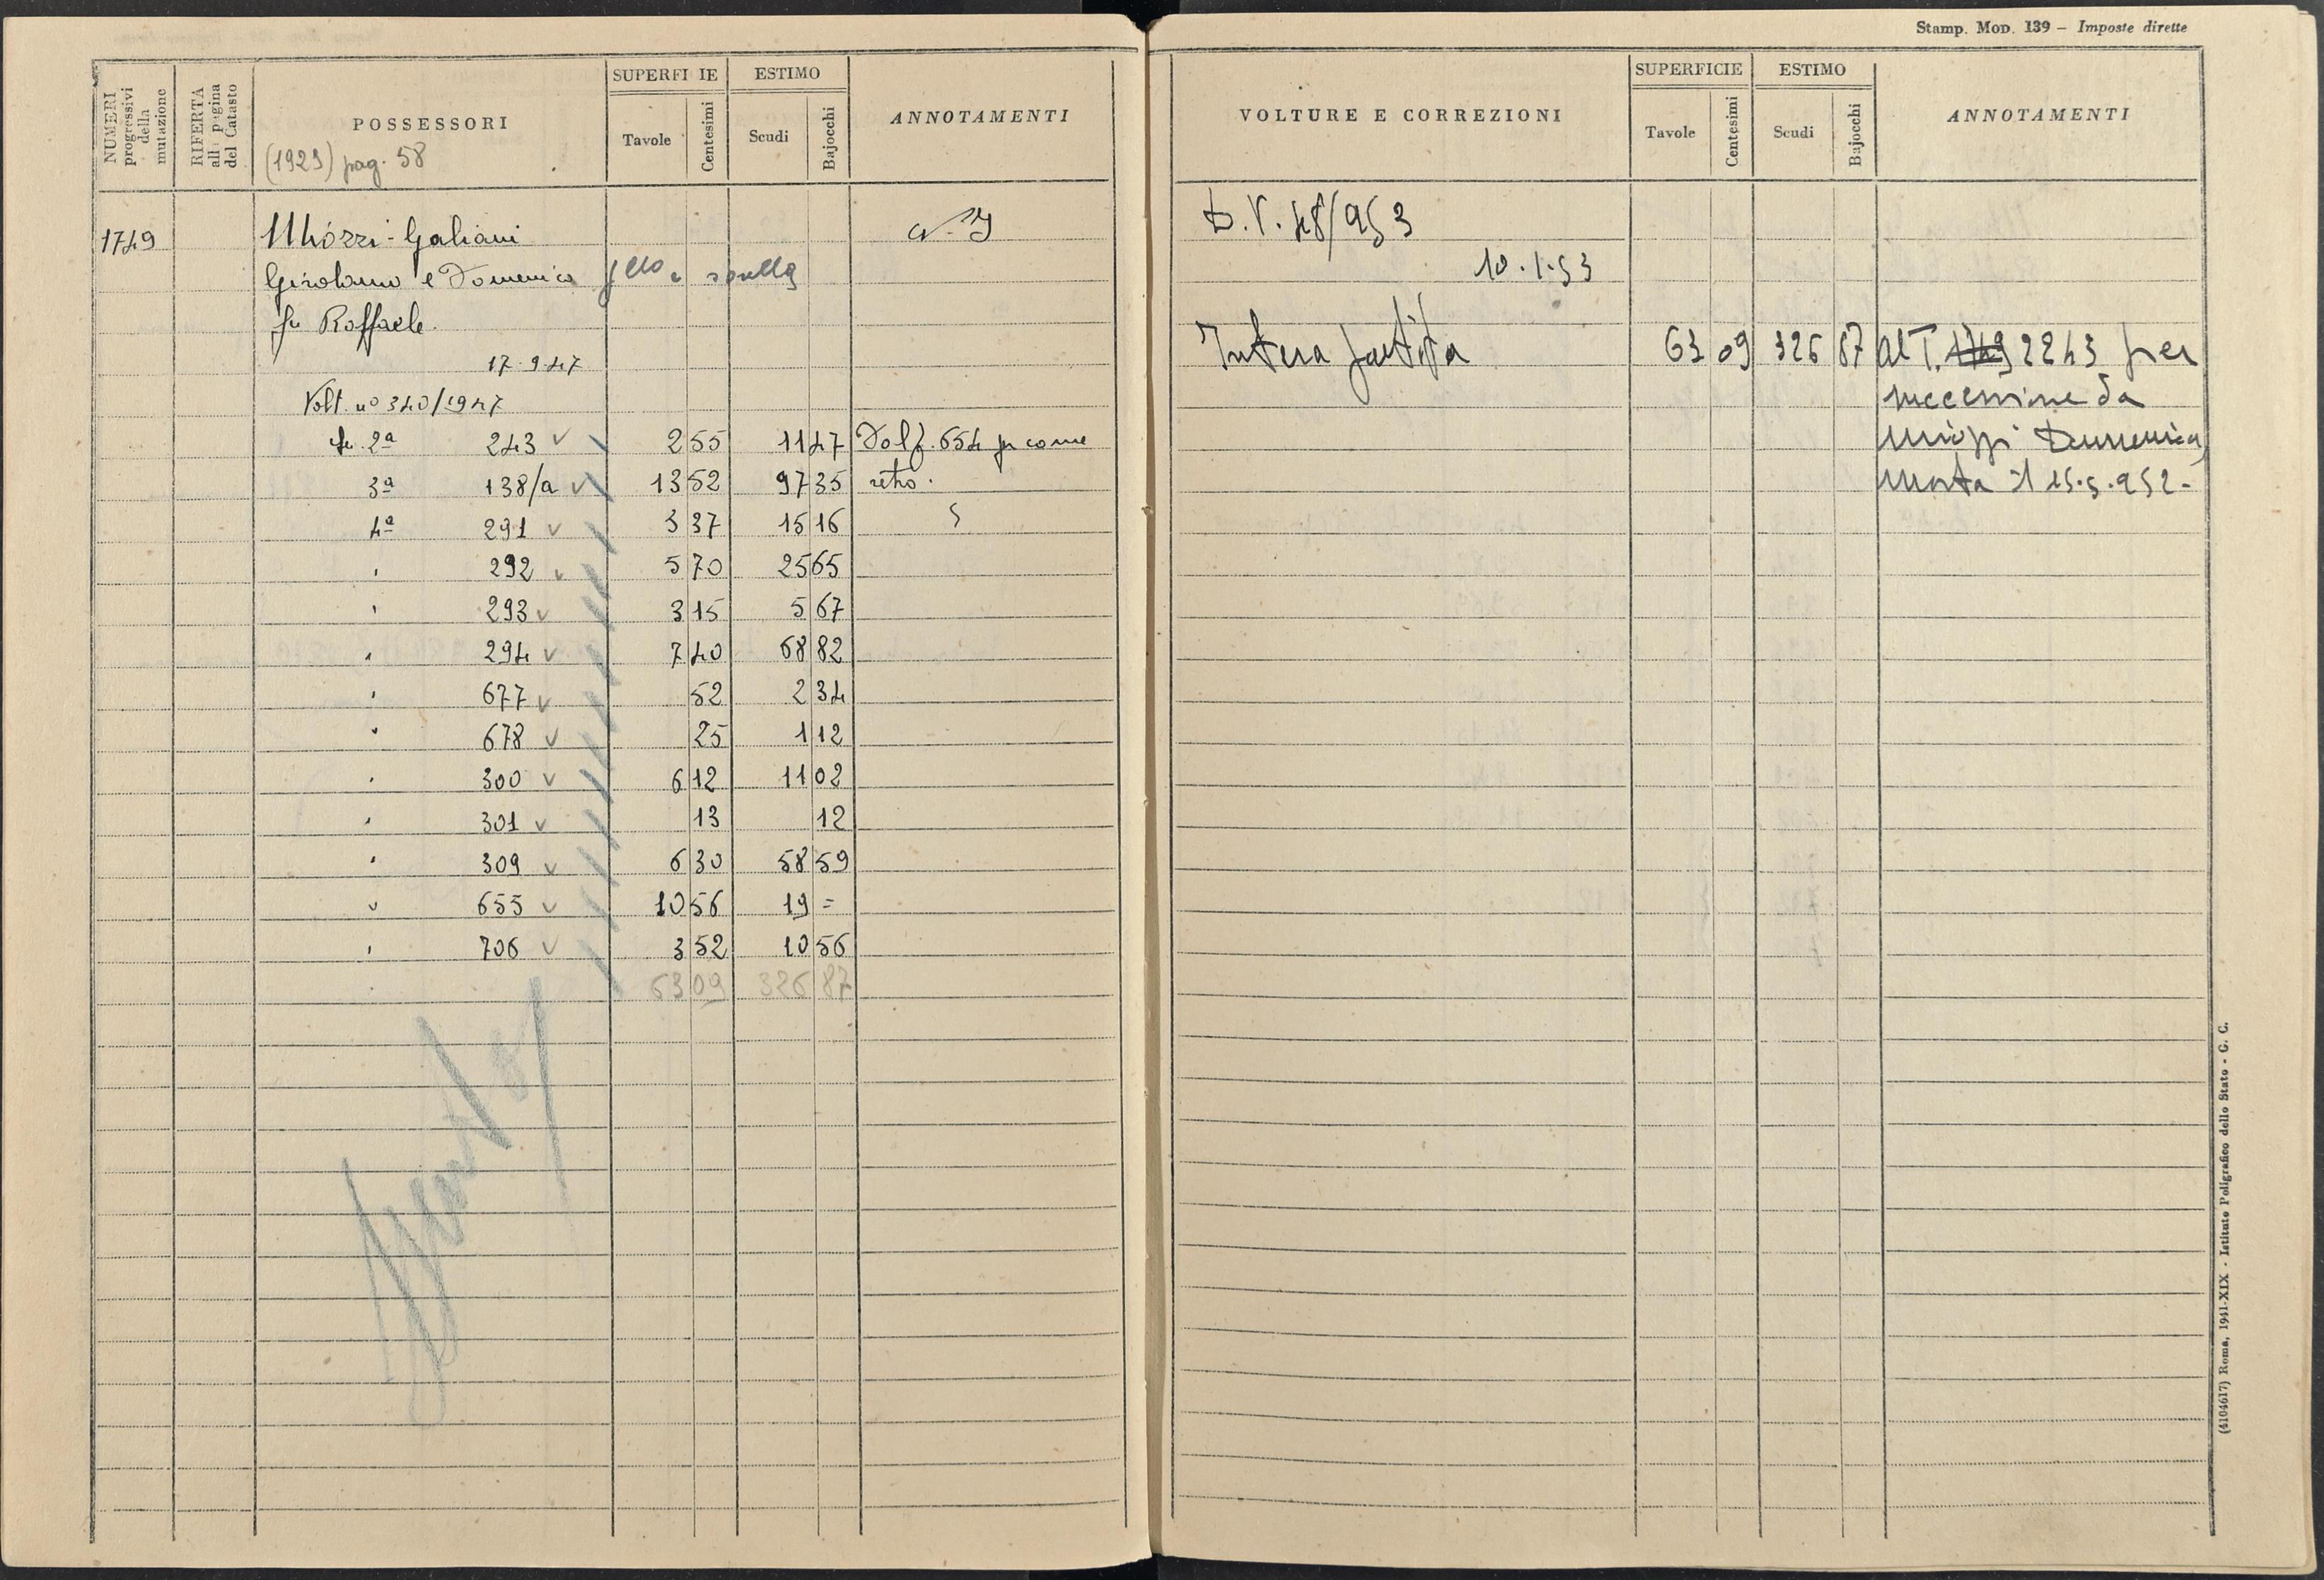 Stamp. Mod. 139 – Imposte dirette
NUMERI progressivi della mutazione
RIFERTA all pagina del Catasto
POSSESSORI
(1923) pag. 58
SUPERFI IE
Tavole Centesimi
ESTIMO
Scudi Bajocchi
ANNOTAMENTI
1749 Miózzi-Galiani
Girolamo e Domenica f.llo e sorella
fu Raffaele.
17.9.47
Volt. nº 340/1947
Se. 2ª 243 2 55 11 47 Dal f. 654 per come
3ª 138/a 13 52 97 35 retro.
4ª 291 3 37 15 16
" 292 5 70 25 65
" 293 3 15 5 67
" 294 7 40 68 82
" 677 52 2 34
" 678 25 1 12
" 300 6 12 11 02
" 301 13 12
" 309 6 30 58 59
" 655 10 56 19 =
" 706 3 52 10 56
63 09 326 87
VOLTURE E CORREZIONI
SUPERFICIE
Tavole Centesimi
ESTIMO
Scudi Bajocchi
ANNOTAMENTI
D.V. 48/953
10.1.53
Intera partita 63 09 326 87 al T. 1749 2243 per
successione da
Miozzi Domenica,
morta il 15.5.952.-
(4104617) Roma, 1941-XIX - Istituto Poligrafico dello Stato - G. C.